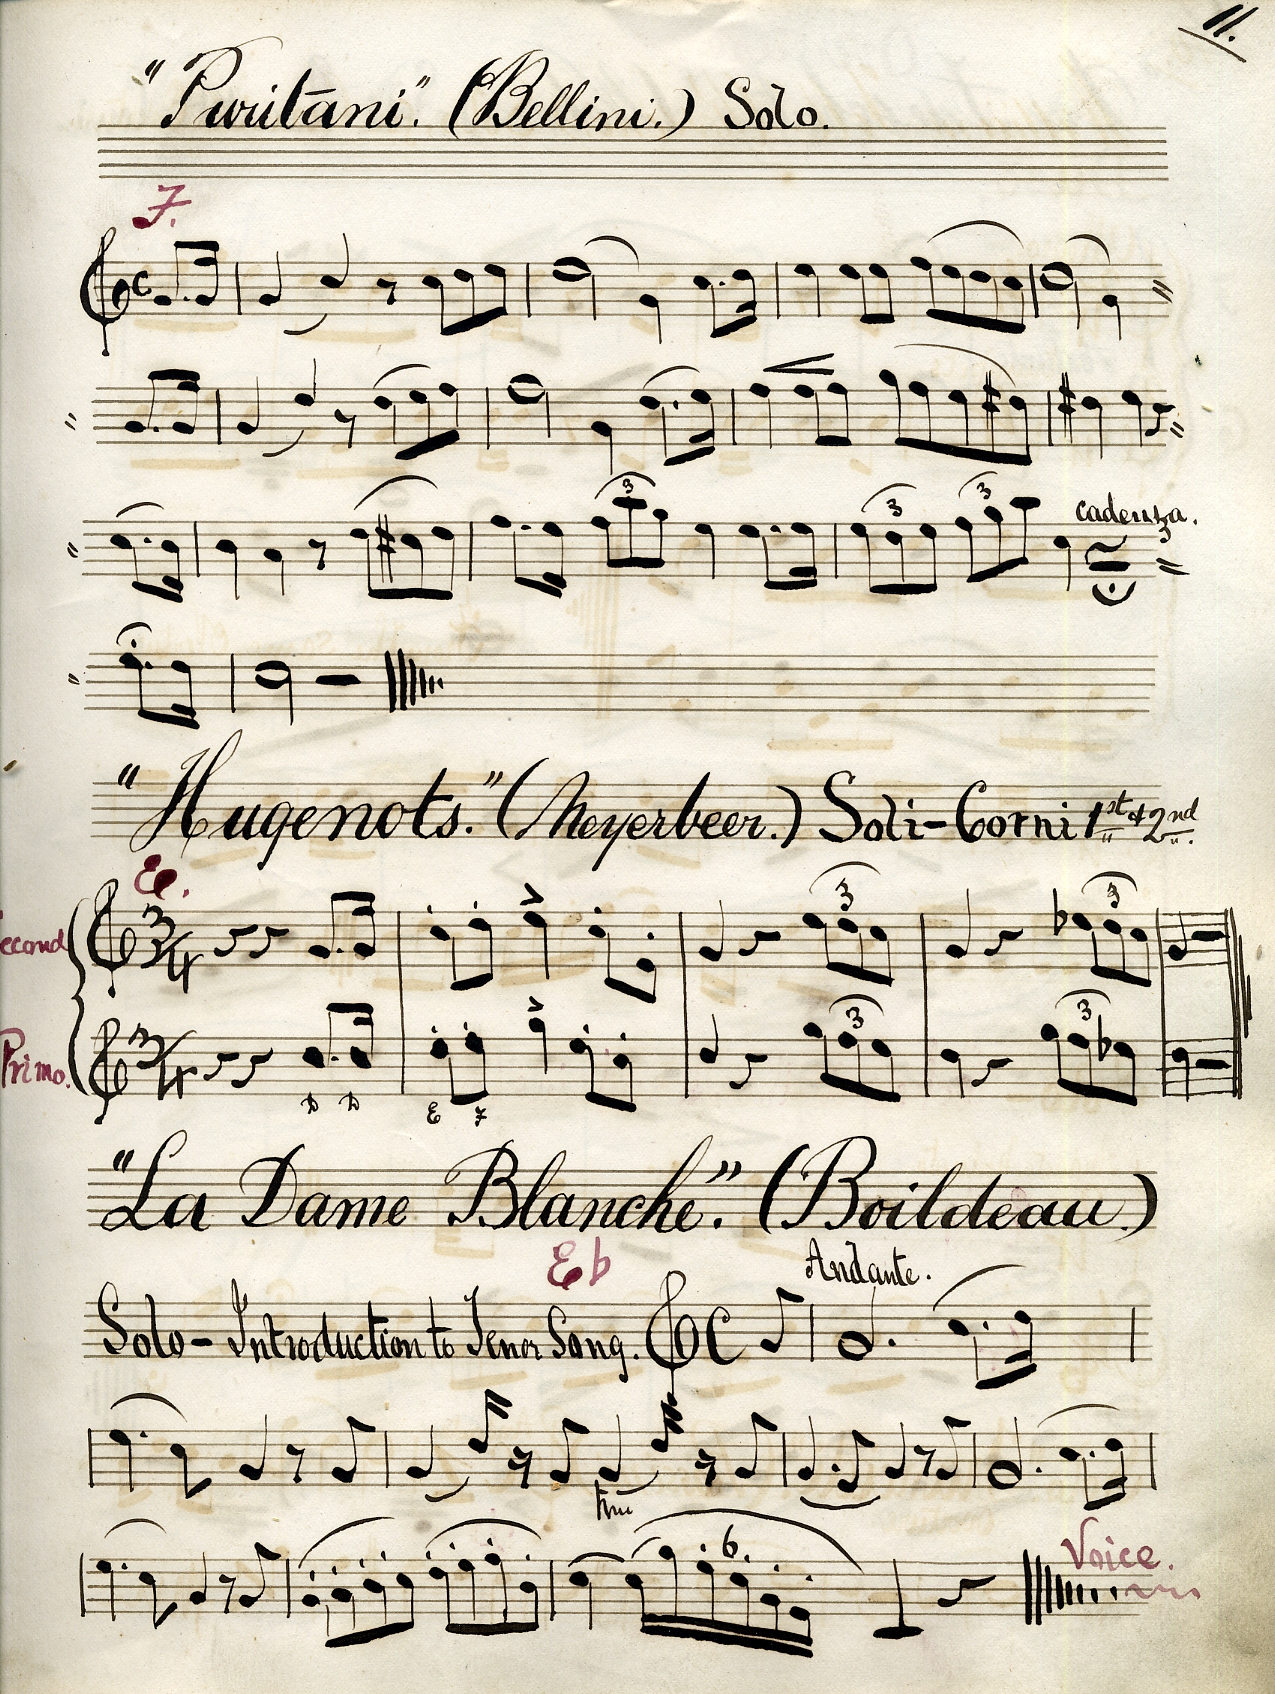 11.
"Puritani." (Bellini.) Solo.
F.
3
3 3 cadenza.
"Hugenots." (Meyerbeer.) Soli - Corni 1st & 2nd.
E.
3 3
Second
3 3
Primo.
D D E F
"La Dame Blanche." (Boildeau.)
Eb Andante.
Solo - Introduction to Tenor Song.
6 Voice.